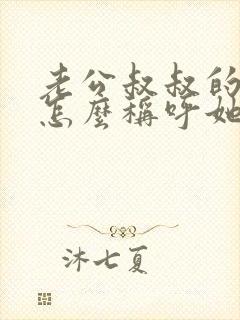 老公叔叔的
怎麼稱呼她
沐七夏